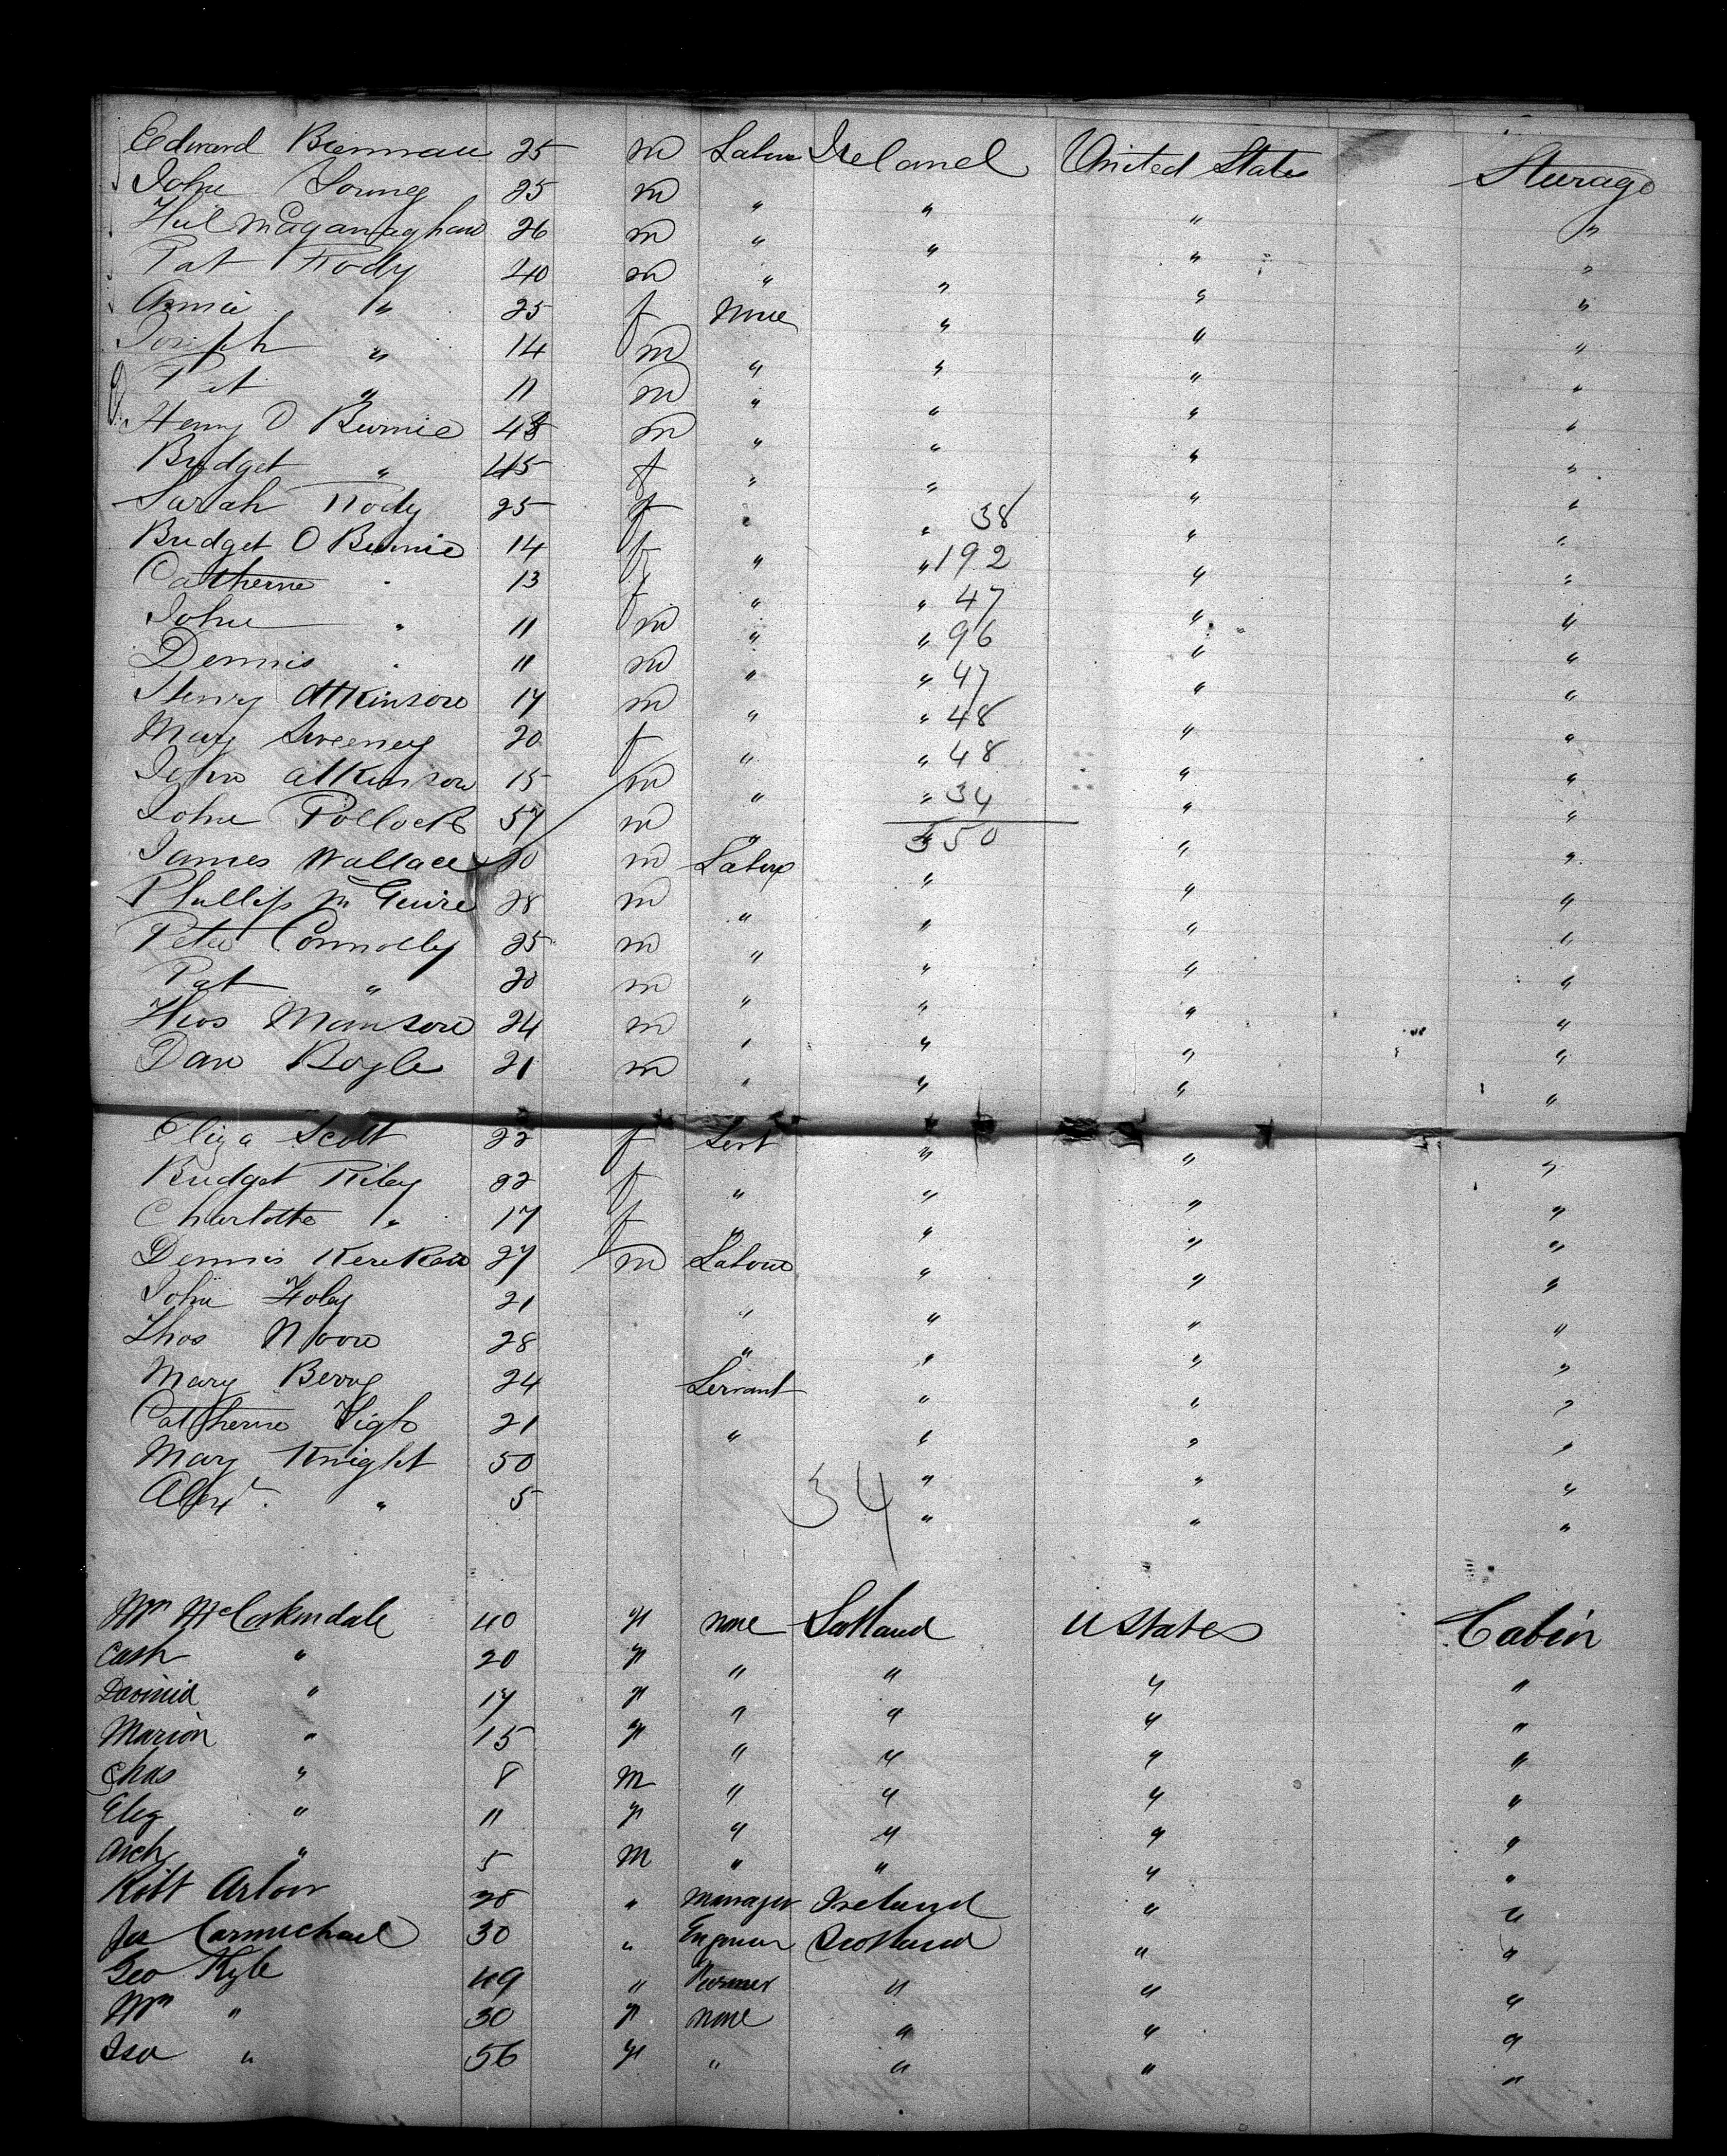 Edward Brennan 25 m Labor Ireland United States Steerage
John Young 25 m " " " "
26 m " " " "
Pat 40 m " " " "
Annie " 25 f None " " "
Joseph " 14 m " " " "
Pat " 11 m " " " "
Henry O Birnie 48 m " " " "
Bridget " 45 f " " " "
Sarah 25 f " " 38 " "
Bridget O Birnie 14 f " " 192 " "
Catherine " 13 f " " 47 " "
John " 11 m " " 96 " "
Dennis " 11 m " " 47 " "
Henry Atkinson 17 m " " 48 " "
Mary Sweeney 20 f " " 48 " "
John Atkinson 15 m " " 34 " "
John Pollock 57 m " " 550 " "
James Wallace 20 m Labor " " "
Phillip McGuire 28 m " " " "
Peter Connolly 25 m " " " "
Pat " 20 m " " " "
Thos Manson 24 m " " " "
Dan Boyle 21 m " " " "
Eliza Scott 22 f Sert " " "
Bridget Riley 22 f " " " "
Charlotte " 17 f " " " "
Dennis 27 m Labour " " "
John Foley 21 " " " "
Thos Moore 28 " " " "
Mary Berry 24 Servant " " "
Catherine 21 " " " "
Mary Knight 50 " " "
Alexr " 5 34 " " "
Mrs McCorkindale 40 f none Scotland U States Cabin
Cath " 20 f " " " "
" 17 f " " " "
Marion " 15 f " " " "
Chas " 8 m " " " "
Eliz " 11 f " " " "
Arch " 5 m " " " "
Robt 28 " manager Ireland " "
Jas Carmichael 30 " Engineer Scotland " "
Geo Kyle 49 " Farmer " " "
Mrs " 30 f none " " "
Isa " 56 f " " " "